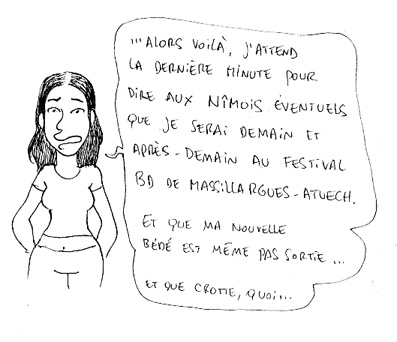 ...ALORS VOILÀ, J'ATTEND
LA DERNIÈRE MINUTE POUR
DIRE AUX NÎMOIS ÉVENTUELS
QUE JE SERAI DEMAIN ET
APRÈS-DEMAIN AU FESTIVAL
BD DE MASSILLARGUES-ATUECH.
ET QUE MA NOUVELLE
BÉDÉ EST MÊME PAS SORTIE...
ET QUE CROTTE, QUOI...